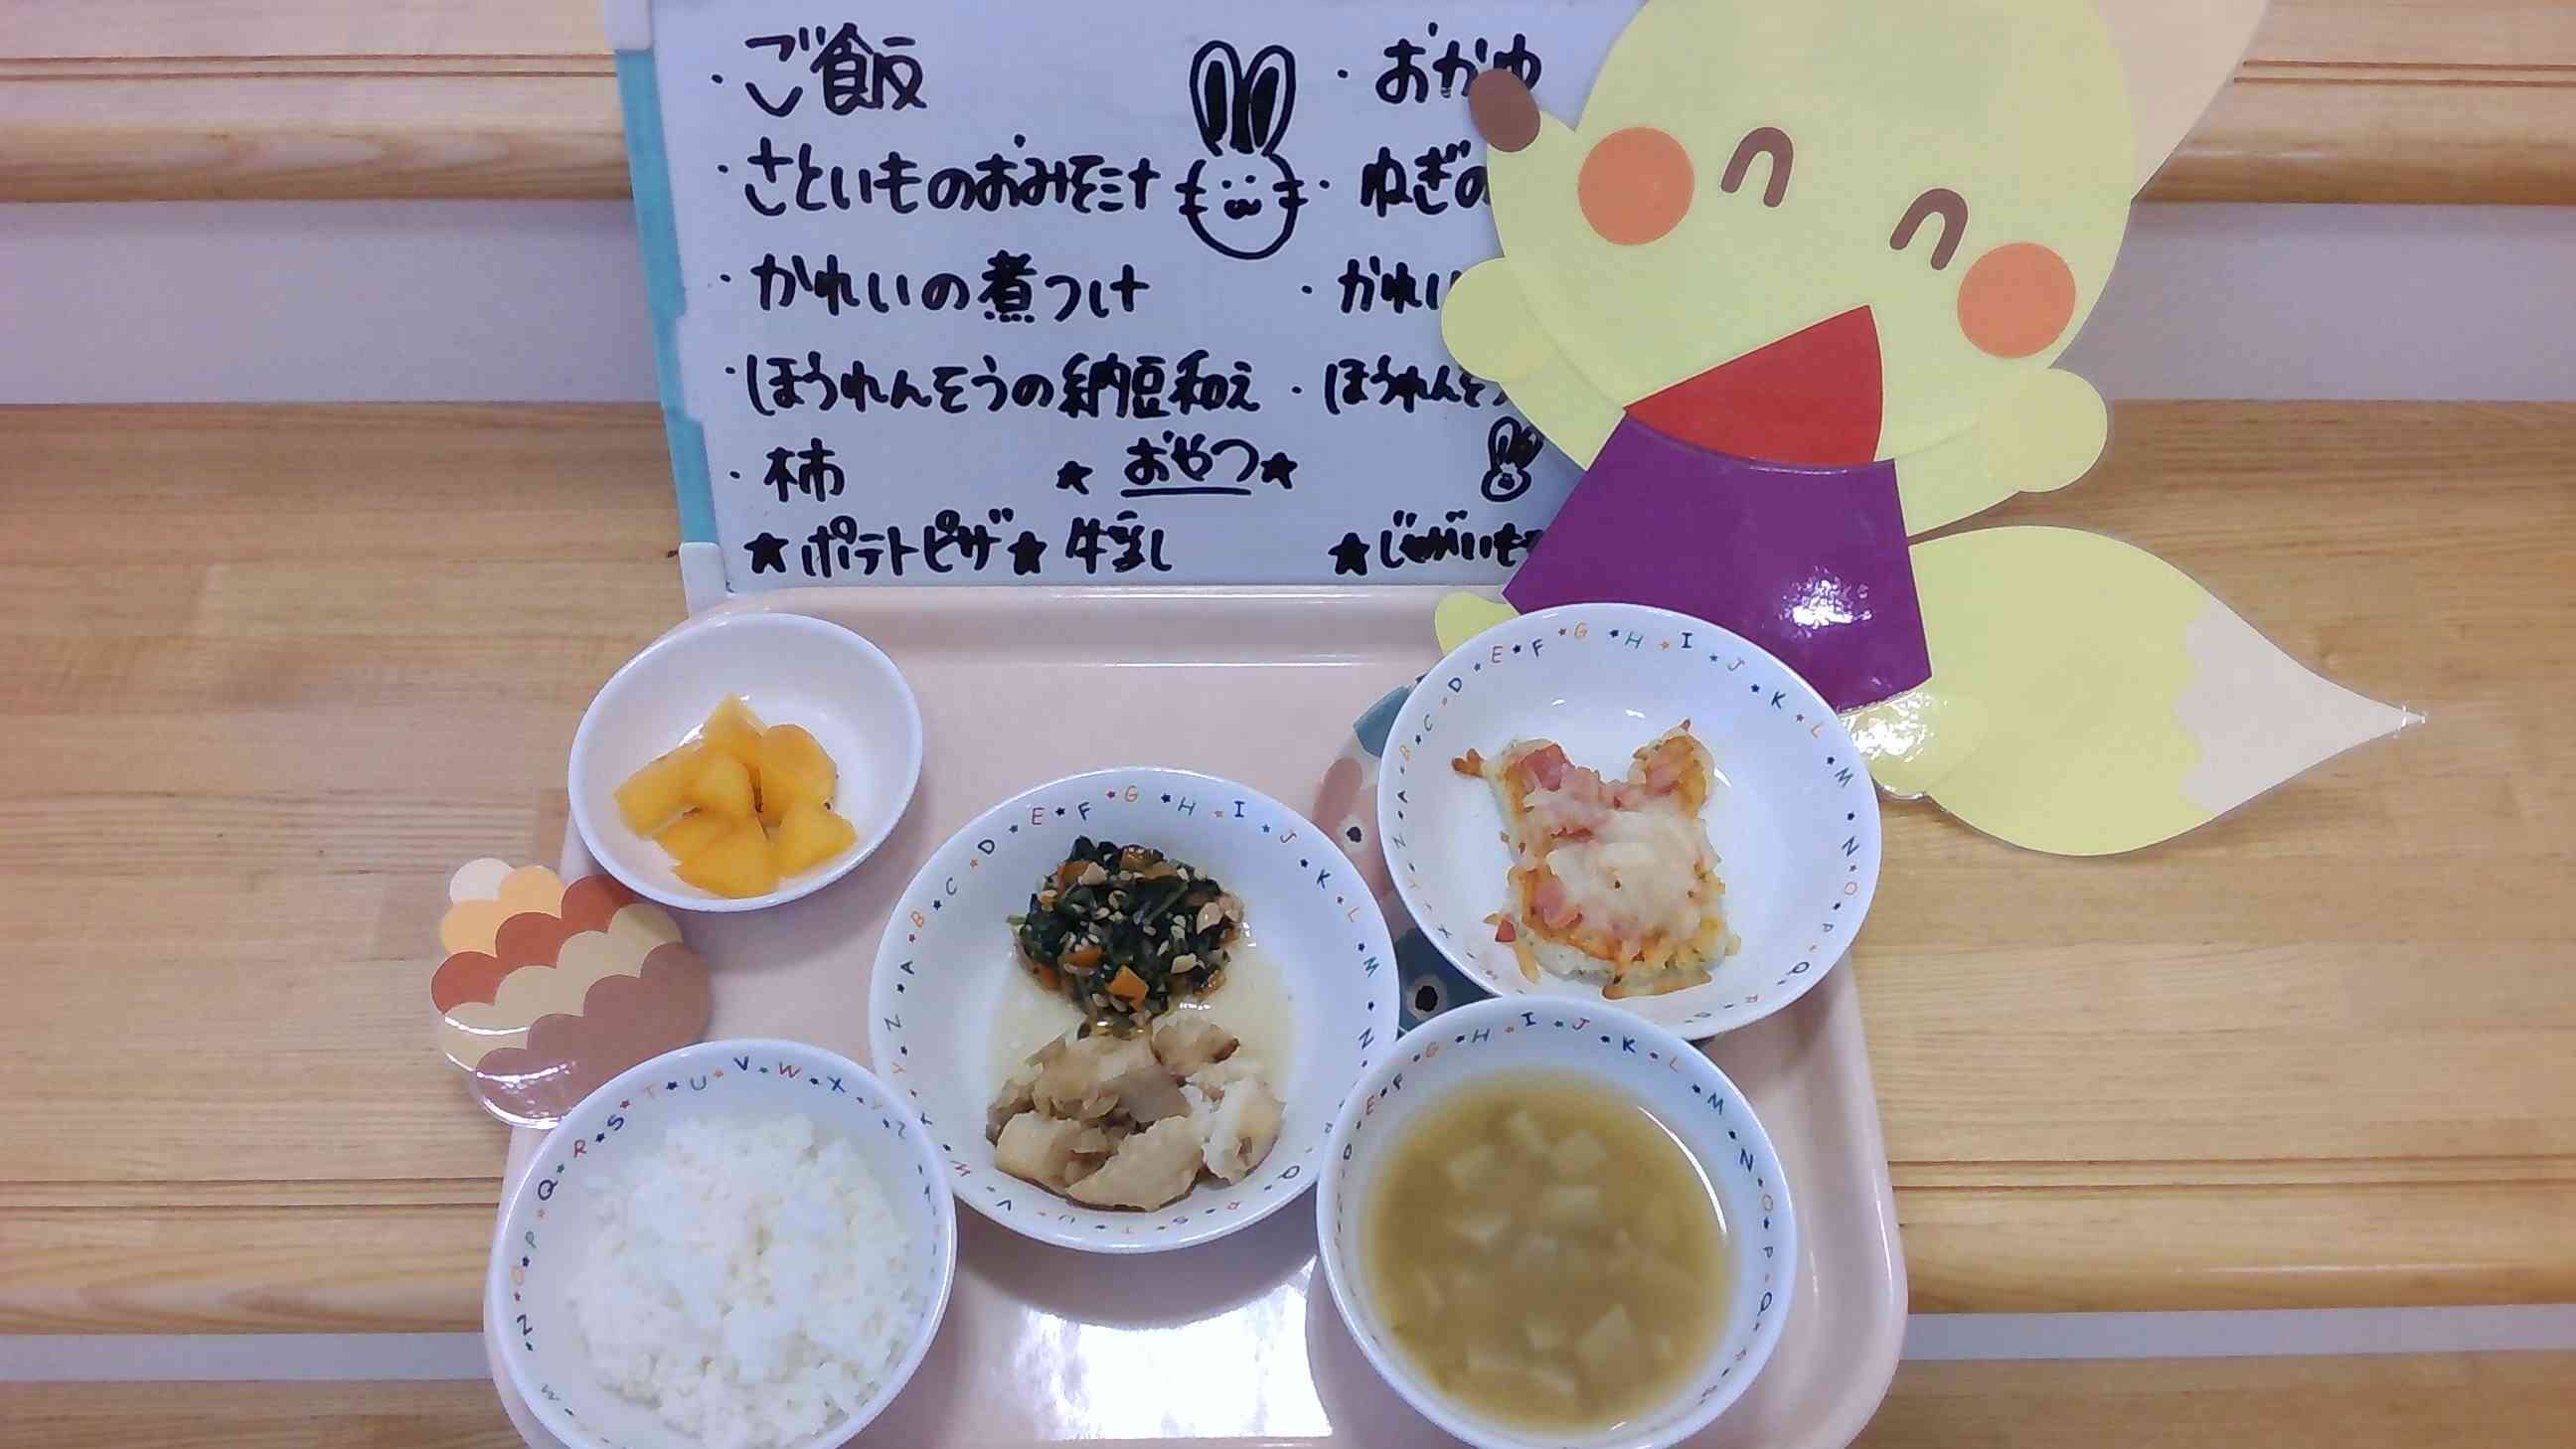 ・ご飯
・おかゆ
・さといものおみそ汁
・ねぎの
・かれいの煮つけ
・かれい
・ほうれんそうの納豆和え
・ほうれんそう
・柿
★おやつ★
★ポテトピザ★牛乳
★じゃがいも
A B C D E F G H I J K L M N O P Q R
Z A B C D E F G H I J K L M N
Q R S T U V W
N O P Q R S T U V W X Y Z
D E F G H I J K L M N O P Q R S